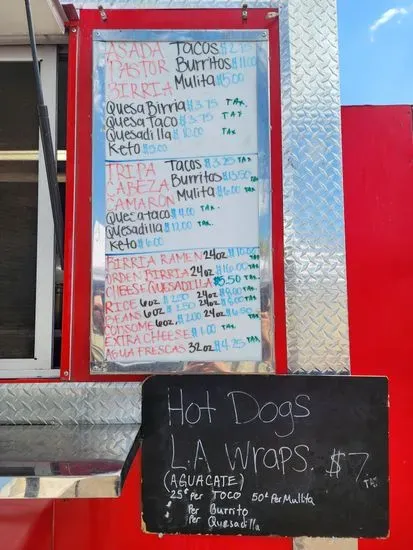 ASADA Tacos $2.75
PASTOR Burritos $11.00
BIRRIA Mulita $5.00
Quesa Birria $3.75 TAX
Quesa Taco $3.75 TAX
Quesadilla $10.00 TAX
Keto $5.00
TRIPA Tacos $3.25 TAX
CABEZA Burritos $13.50 TAX
CAMARON Mulita $6.00 TAX
Quesataco $4.00 TAX
Quesadilla $12.00 TAX
Keto $6.00
BIRRIA RAMEN 24oz $10.00 TAX
ORDEN BIRRIA 24oz $16.00 TAX
CHEESE QUESADILLA $5.50 TAX
RICE 6oz $2.50 24oz $8.00 TAX
BEANS 6oz $2.50 24oz $8.00 TAX
CONSOME 6oz. $2.00 24oz $6.50 TAX
EXTRA CHEESE $1.00 TAX
AGUA FRESCAS 32oz $4.25 TAX
Hot Dogs
L.A Wraps. $7 TAX
(AGUACATE)
25¢ Per TOCO 50¢ Per Mullita
1 Per Burrito
1 Per Quesadilla